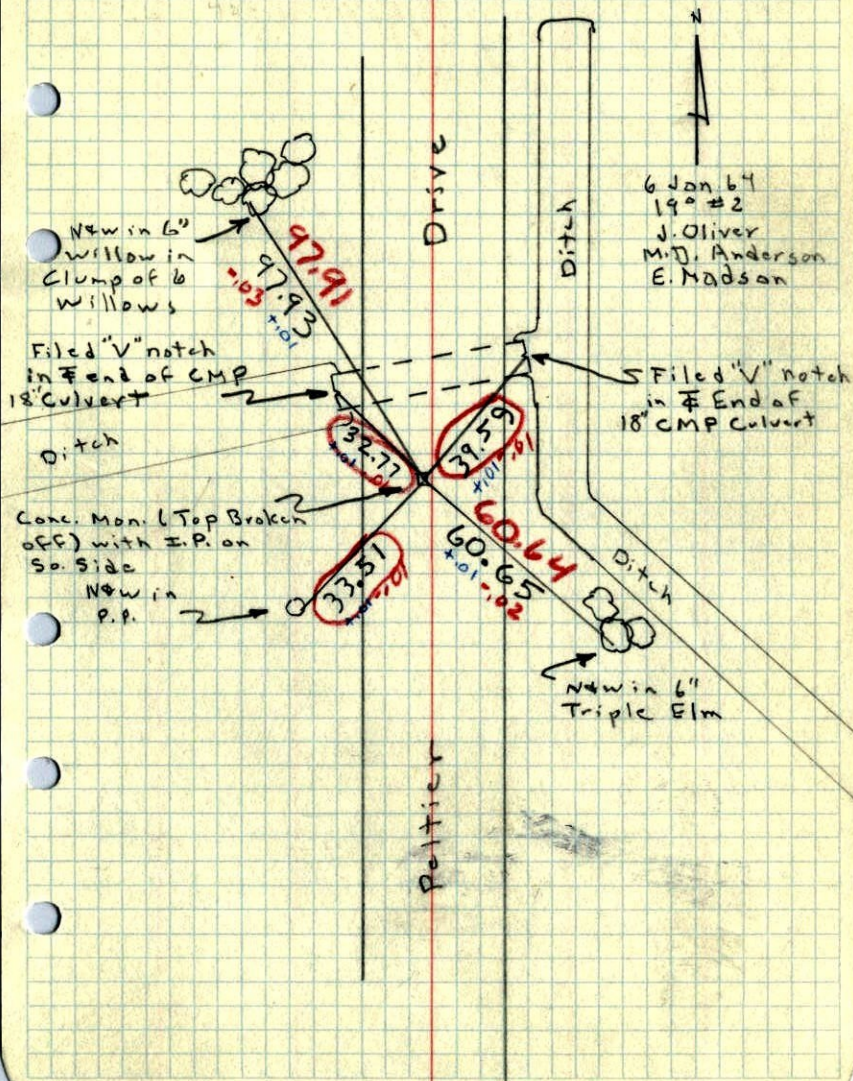 N
6 Jan 64
19° #2
J. Oliver
M.D. Anderson
E. Madson
Drive
Ditch
N&W in 6"
Willow in
Clump of 6
Willows
97.91
97.93
-.03
+.01
Filed "V" notch
in E end of CMP
18" Culvert
Ditch
Filed "V" notch
in E End of
18" CMP Culvert
32.77
+.01 -.01
39.59
+.01 -.01
Conc. Mon. (Top Broken
off) with I.P. on
So. Side
N&W in
P.P.
33.51
+.01 -.01
60.64
60.65
+.01 -.02
Ditch
N&W in 6"
Triple Elm
Peltier